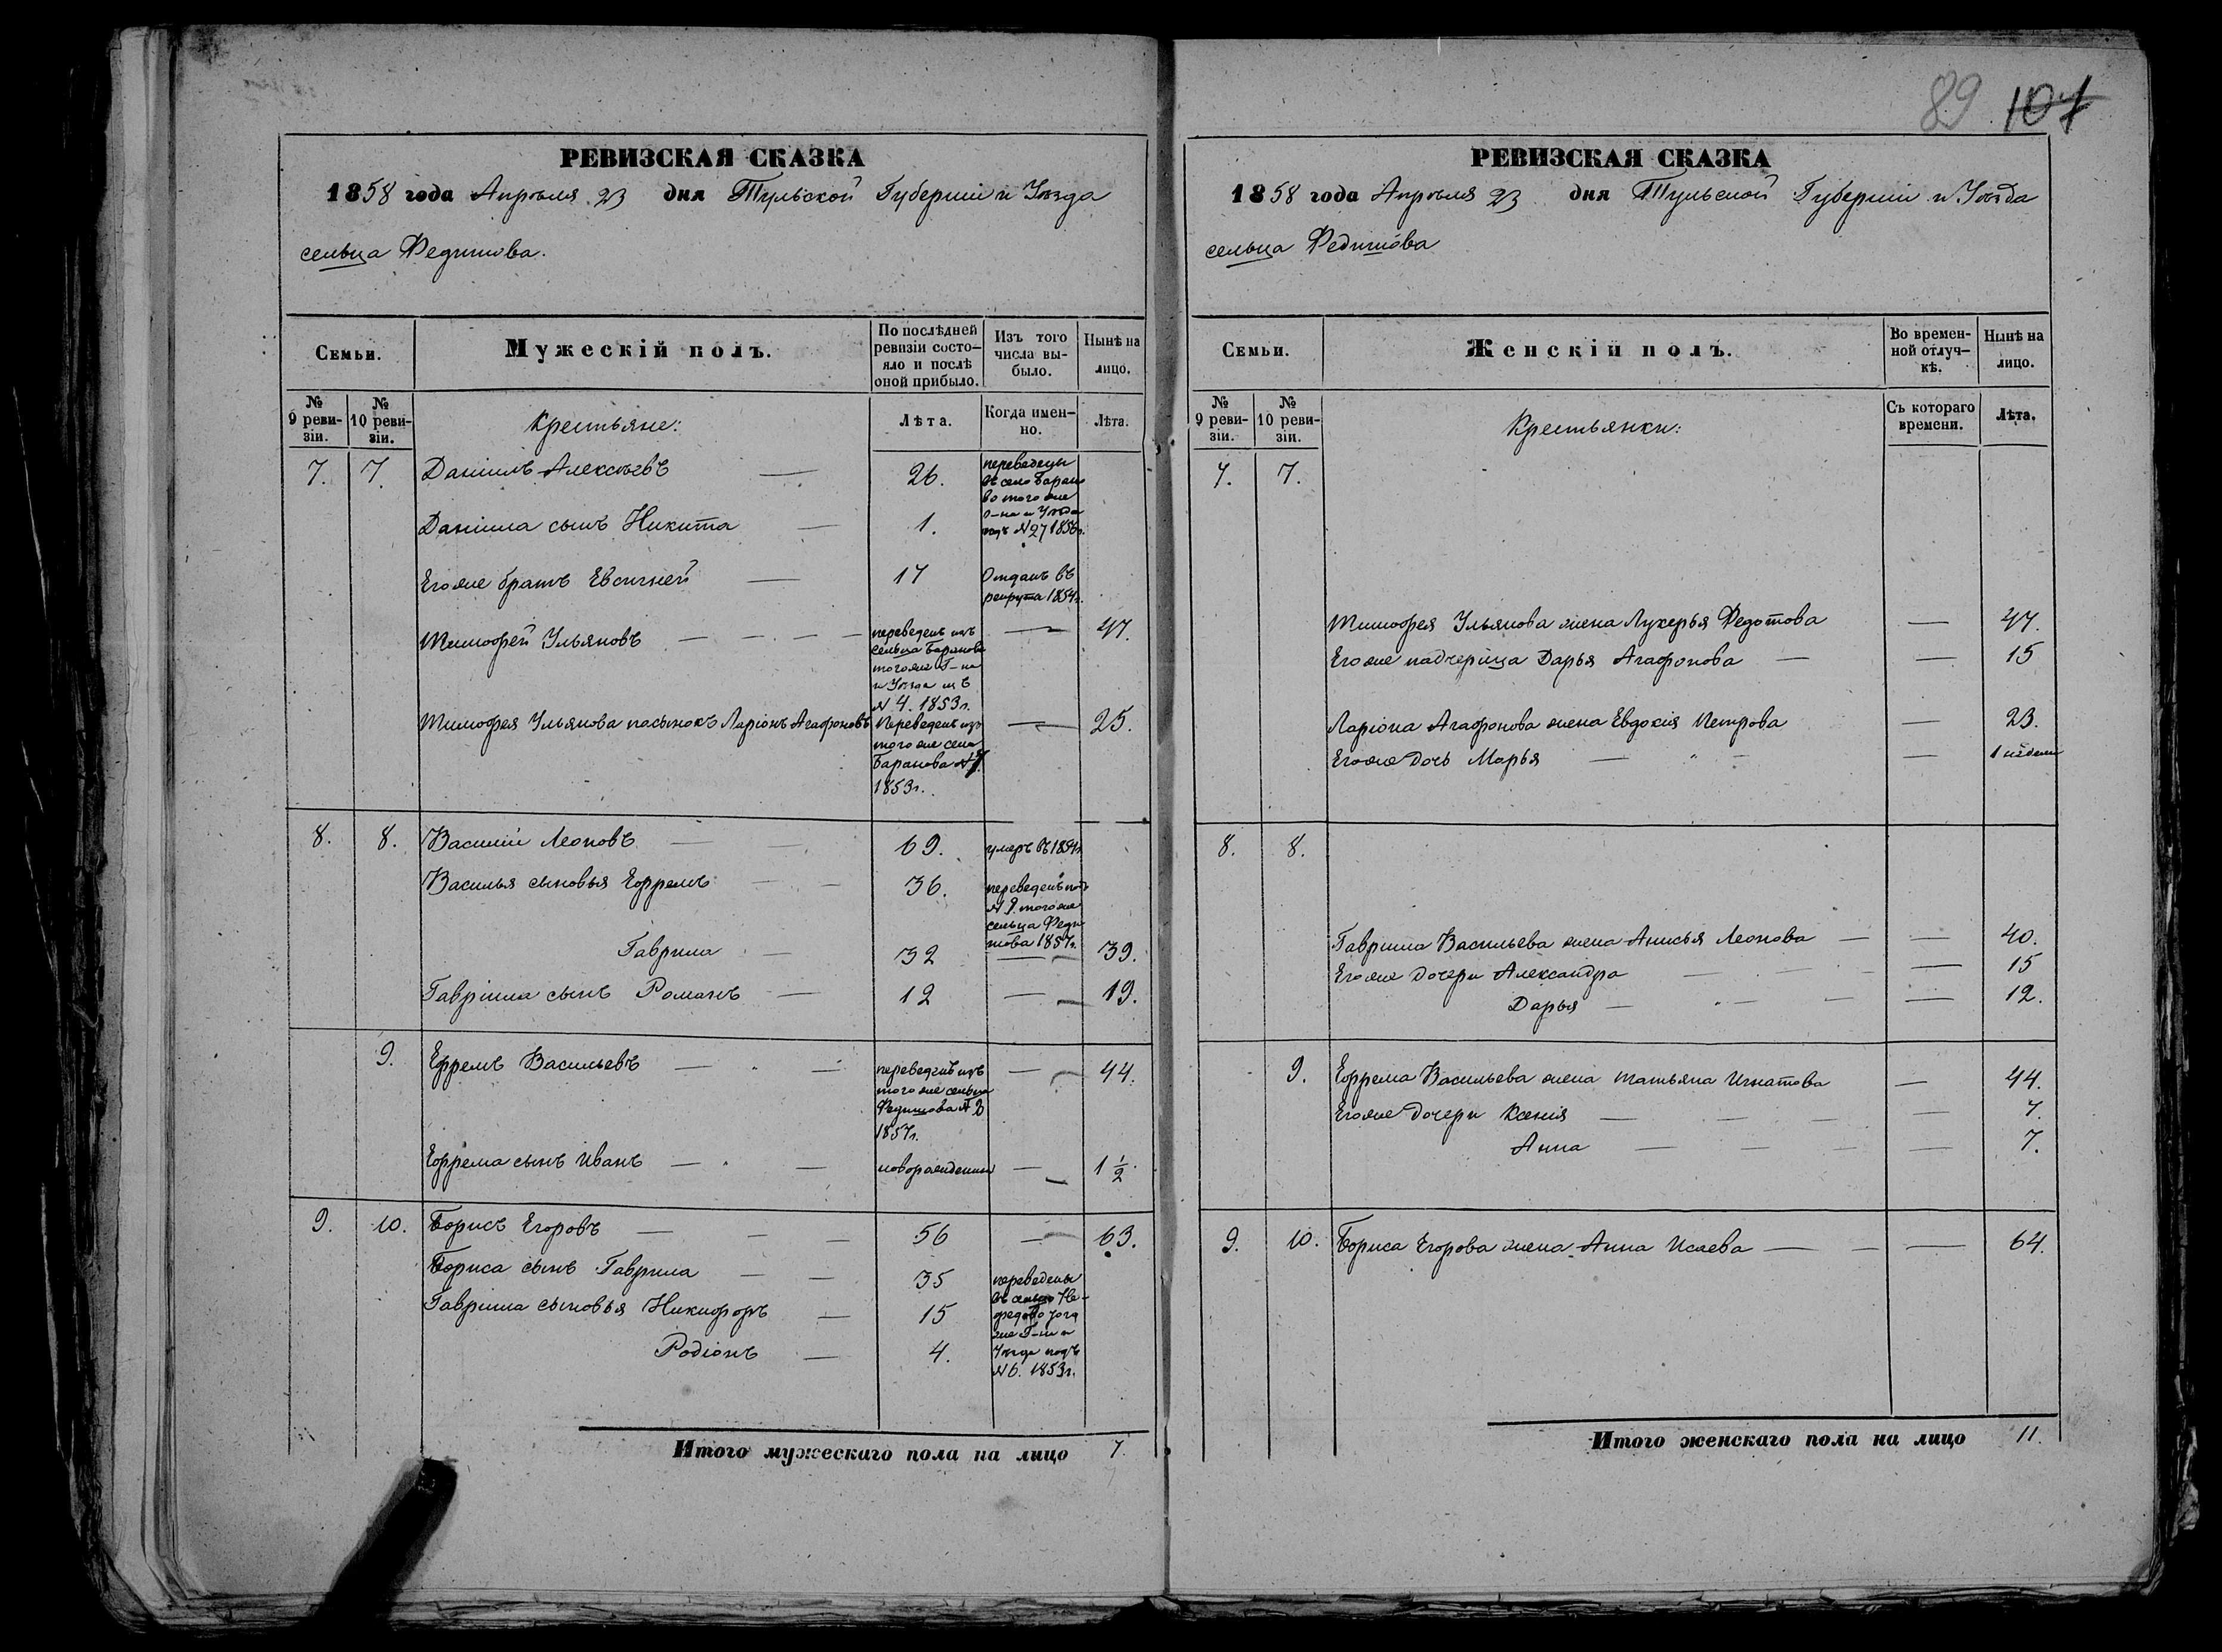 89 107
РЕВИЗСКАЯ СКАЗКА
1858 года Апрѣля 23 дня Тульской Губерніи и Уѣзда
сельца Федишова.
Семьи.
Мужескій полъ.
По послѣдней
ревизіи состо-
яло и послѣ
оной прибыло.
Изъ того
числа вы-
было.
Нынѣ на
лицо.
№
9 реви-
зіи.
№
10 реви-
зіи.
Крестьяне:
Лѣта.
Когда имен-
но.
Лѣта.
7. 7. Даніилъ Алексѣевъ — 26.
переведены
въ село Барано
во того же
Г-на и Уѣзда
подъ №27 1856г.
Даніила сынъ Никита — 1.
Его же братъ Евсигней — 17
Отданъ въ
рекрута 1854г.
Тимофей Ульяновъ — — — — 47.
переведенъ изъ
сельца Баранова
того же Г-на
и Уѣзда изъ
№ 4. 1853г.
Тимофея Ульянова пасынокъ Ларіонъ Агафоновъ — 25.
Переведенъ изъ
того же села
Баранова №
1853г.
8. 8. Василій Леоновъ — — 69. умеръ въ 1854г
Василья сыновья Ефремъ — — 36.
переведенъ подъ
№ 9. того же
сельца Феди-
шова 1857г.
Гаврила — 32 — 39.
Гавріила сынъ Романъ — 12 — 19.
9. Ефремъ Васильевъ — — — 44.
переведенъ изъ
того же сельца
Федишова № 8
1857г.
Ефрема сынъ Иванъ — — новорожденный — 1 1/2.
9. 10. Борисъ Егоровъ — — — 56 — 63.
Бориса сынъ Гаврила — — 35
Гавріила сыновья Никифоръ — 15
Родіонъ — 4.
переведены
въ сельцо Не-
федово того
же Г-на и
Уѣзда подъ
№ 6. 1853г.
Итого мужескаго пола на лицо 7.
РЕВИЗСКАЯ СКАЗКА
1858 года Апрѣля 23 дня Тульской Губерніи и Уѣзда
сельца Федишова
Семьи.
Женскій полъ.
Во времен-
ной отлуч-
кѣ.
Нынѣ на
лицо.
№
9 реви-
зіи.
№
10 реви-
зіи.
Крестьянки:
Съ котораго
времени.
Лѣта.
7. 7.
Тимофея Ульянова жена Лукерья Федотова — 47.
Его же падчерица Дарья Агафонова — — 15
Ларіона Агафонова жена Евдокія Петрова — 23.
Его же дочь Марья — — — 1 недели
8. 8.
Гаврила Васильева жена Анисья Леонова — — 40.
Его же дочери Александра — — — 15
Дарья — — — — 12.
9. Ефрема Васильева жена Татьяна Игнатова — 44.
Его же дочери Ксенія — — — — 7.
Анна — — — — 7.
9. 10. Бориса Егорова жена Анна Исаева — — — 64.
Итого женскаго пола на лицо 11.